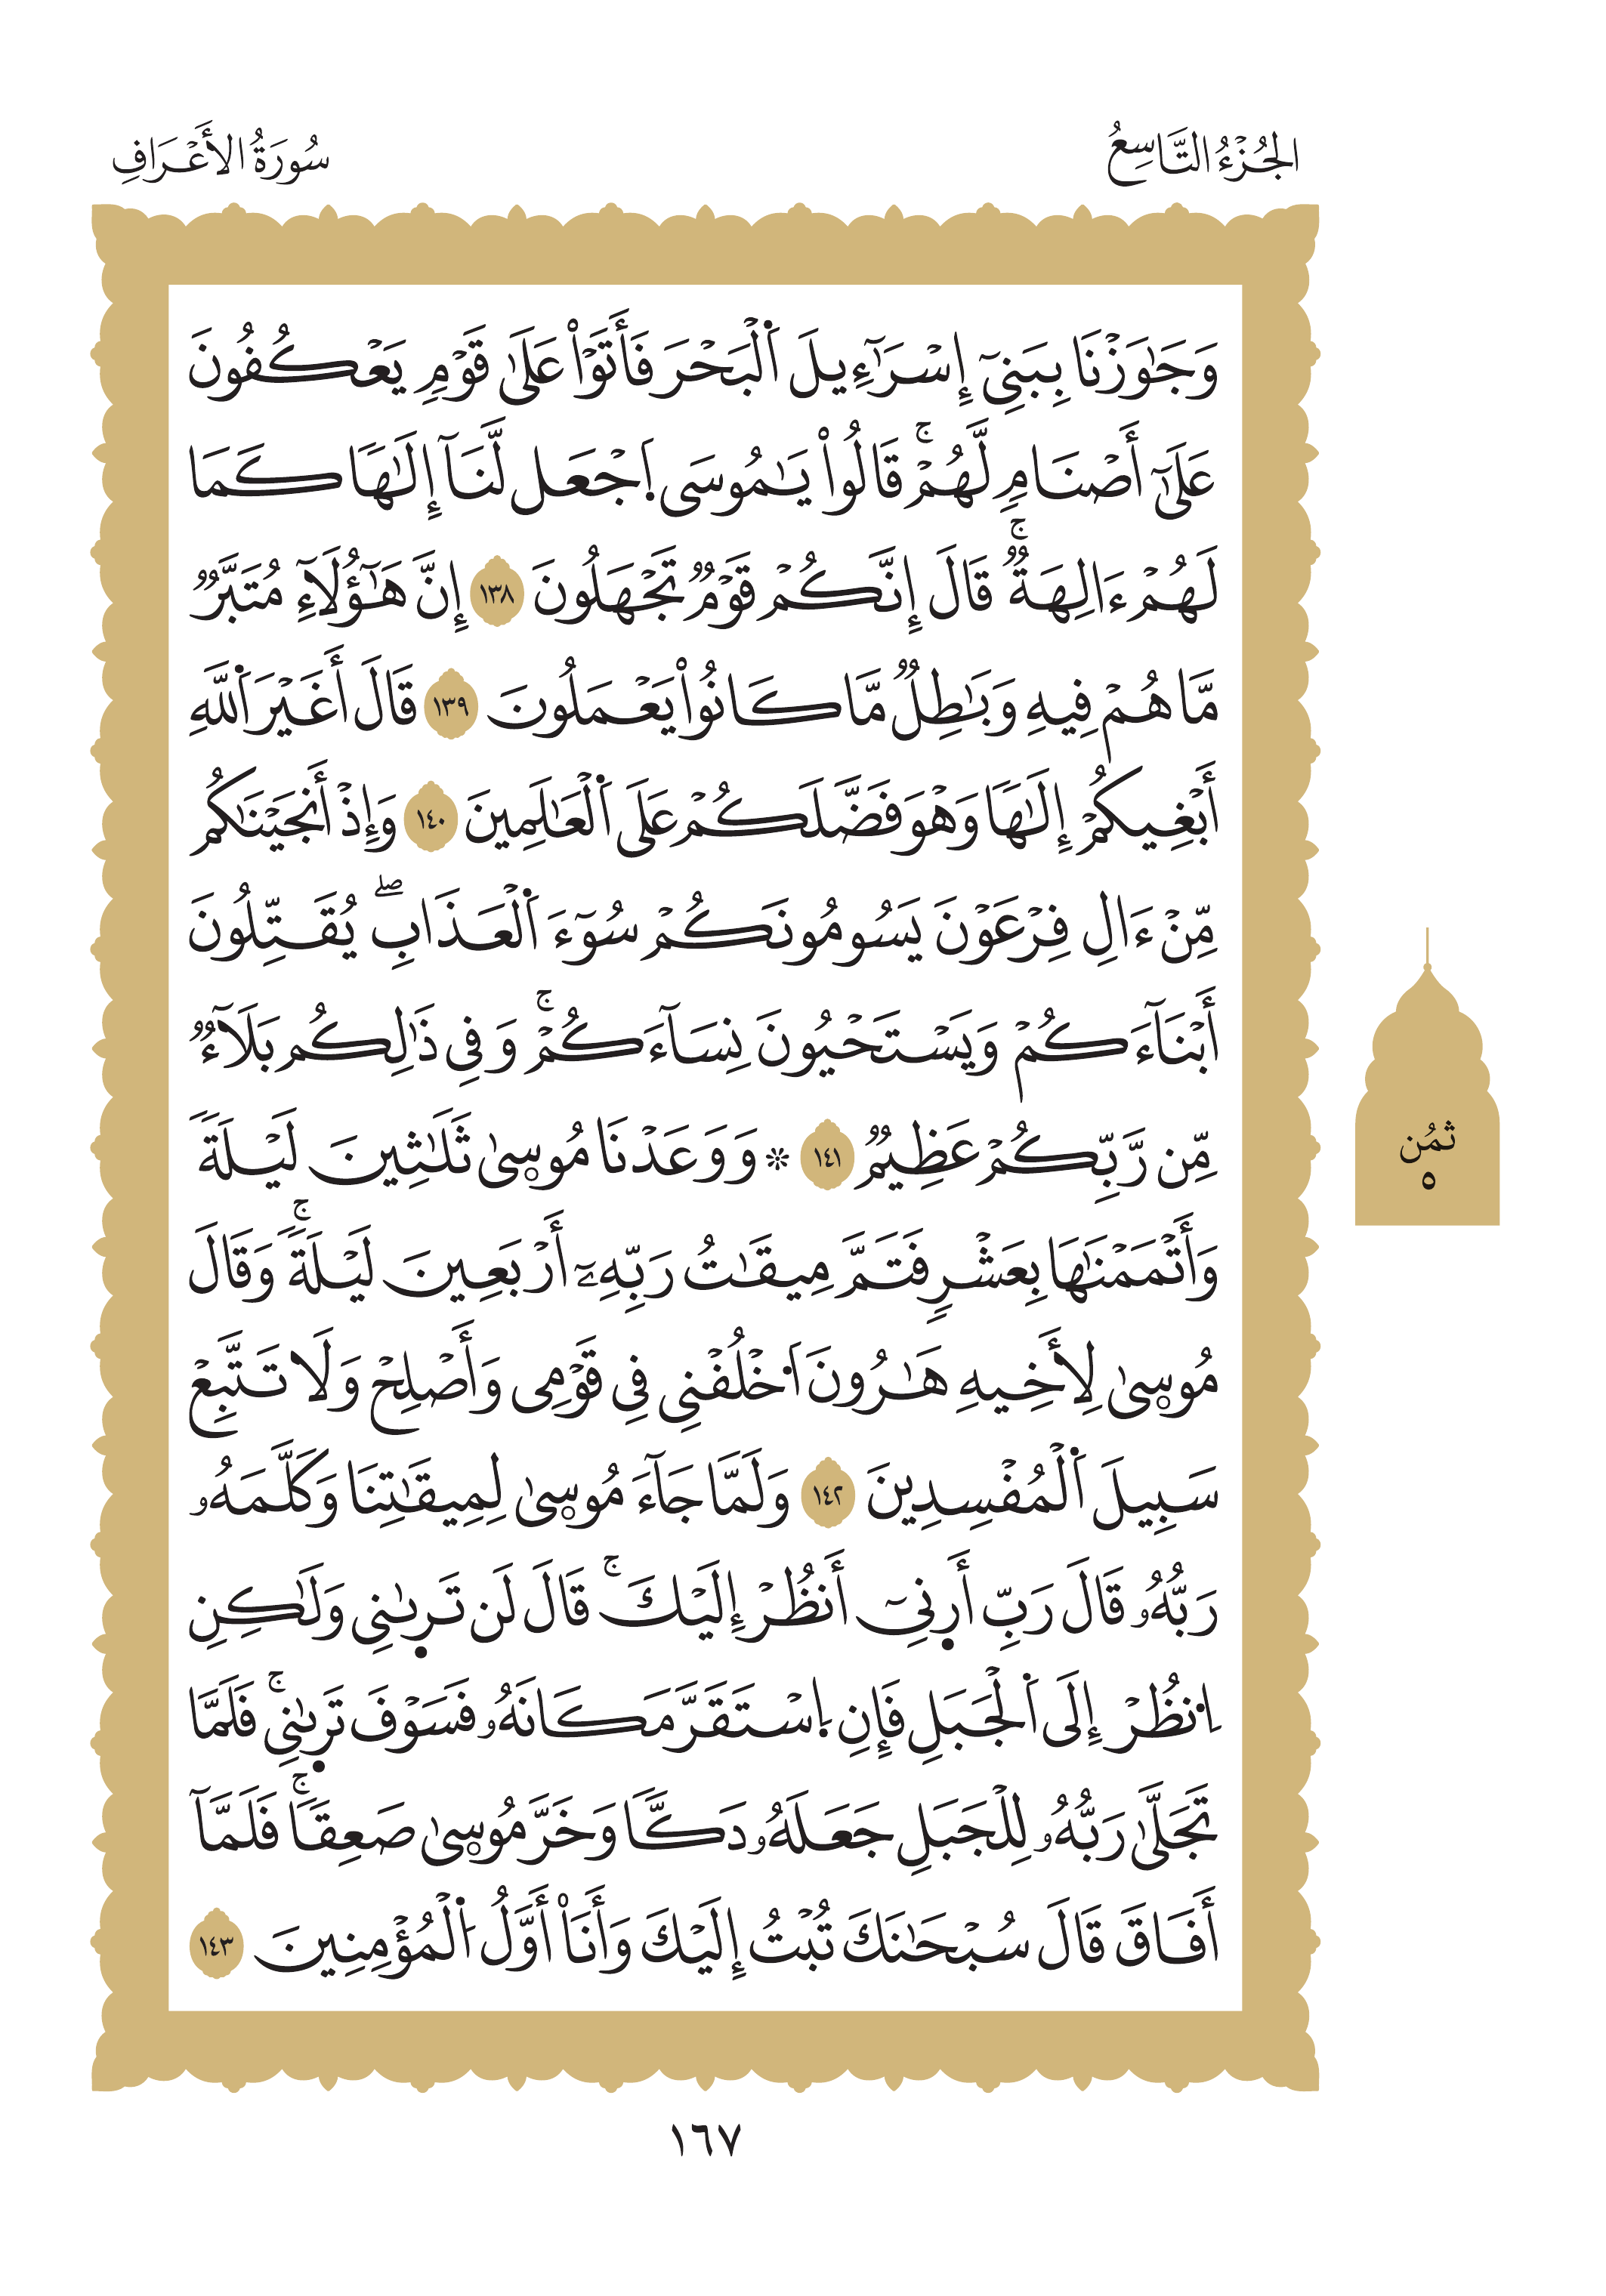 الجُزْءُ التَّاسِعُ
سُورَةُ الأَعْرَافِ
وَجَٰوَزْنَا بِبَنِىٓ إِسْرَآءِيلَ اَ۬لْبَحْرَ فَأَتَوْاْ عَلَىٰ قَوْمٖ يَعْكُفُونَ
عَلَىٰٓ أَصْنَامٖ لَّهُمْۚ قَالُواْ يَٰمُوسَى اَ۪جْعَل لَّنَآ إِلَٰهٗا كَمَا
لَهُمْ ءَالِهَةٞۚ قَالَ إِنَّكُمْ قَوْمٞ تَجْهَلُونَ ١٣٨ إِنَّ هَٰٓؤُلَآءِ مُتَبَّرٞ
مَّا هُمْ فِيهِ وَبَٰطِلٞ مَّا كَانُواْ يَعْمَلُونَ ١٣٩ قَالَ أَغَيْرَ اَ۬للَّهِ
أَبْغِيكُمْ إِلَٰهٗا وَهْوَ فَضَّلَكُمْ عَلَى اَ۬لْعَٰلَمِينَ ١٤٠ وَإِذْ أَنجَيْنَٰكُم
مِّنْ ءَالِ فِرْعَوْنَ يَسُومُونَكُمْ سُوٓءَ اَ۬لْعَذَابِۖ يُقَتِّلُونَ
أَبْنَآءَكُمْ وَيَسْتَحْيُونَ نِسَآءَكُمْۚ وَفِي ذَٰلِكُم بَلَآءٞ
مِّن رَّبِّكُمْ عَظِيمٞ ١٤١ ۞ وَوَعَدْنَا مُوسۭىٰ ثَلَٰثِينَ لَيْلَةٗ
وَأَتْمَمْنَٰهَا بِعَشْرٖ فَتَمَّ مِيقَٰتُ رَبِّهِۦٓ أَرْبَعِينَ لَيْلَةٗۚ وَقَالَ
مُوسۭىٰ لِأَخِيهِ هَٰرُونَ اَ۟خْلُفْنِي فِي قَوْمِي وَأَصْلِحْ وَلَا تَتَّبِعْ
سَبِيلَ اَ۬لْمُفْسِدِينَ ١٤٢ وَلَمَّا جَآءَ مُوسۭىٰ لِمِيقَٰتِنَا وَكَلَّمَهُۥ
رَبُّهُۥ قَالَ رَبِّ أَرۭنِىٓ أَنظُرْ إِلَيْكَۚ قَالَ لَن تَرۭىٰنِي وَلَٰكِنِ
اِ۟نظُرْ إِلَى اَ۬لْجَبَلِ فَإِنِ اِ۪سْتَقَرَّ مَكَانَهُۥ فَسَوْفَ تَرۭىٰنِيۚ فَلَمَّا
تَجَلَّىٰ رَبُّهُۥ لِلْجَبَلِ جَعَلَهُۥ دَكّٗا وَخَرَّ مُوسۭىٰ صَعِقٗاۚ فَلَمَّآ
أَفَاقَ قَالَ سُبْحَٰنَكَ تُبْتُ إِلَيْكَ وَأَنَا۠ أَوَّلُ اُ۬لْمُؤْمِنِينَ ١٤٣
ثمُن
٥
١٦٧